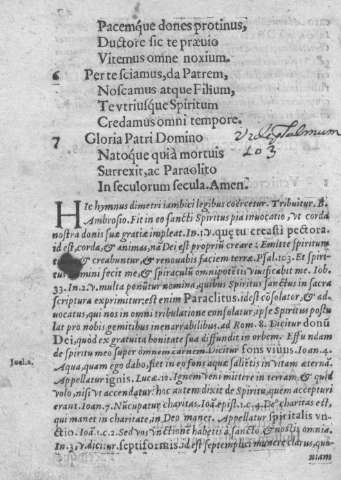 Pacemq́ue dones protinus,
Ductore sic te præuio
Vitemus omne noxium.
6 Per te sciamus, da Patrem,
Noscamus atque Filium,
Te vtriusque Spiritum
Credamus omni tempore.
7 Gloria Patri Domino
Natoque qui à mortuis
Surrexit, ac Paraclito
In seculorum secula. Amen.
psalmum
103
HIc hymnus dimetri iambici legibus coërcetur. Tribuitur. B.
Ambrosio. Fit in eo sancti Spiritus pia inuocatio, vt corda
nostra donis suæ gratiæ impleat. In .i.v. que tu creasti pectora.
id est, corda, & animas, nã Dei est propriũ creare: Emitte spiritum
& creabuntur, & renouabis faciem terræ. Psal. 103. Et spiri-
omini fecit me, & spiraculũ omnipotẽtis viuificabit me. Iob.
33. In .2.v. multa ponũtur nomina, quibus Spiritus sanctus in sacra
scriptura exprimitur, est enim Paraclitus. id est cõsolator, & ad-
uocatus, qui nos in omni tribulatione consolatur, ipse Spiritus postu
lat pro nobis gemitibus inenarrabilibus. ad Rom. 8. Dicitur donũ
Dei, quod ex gratuita bonitate sua diffundit in orbem. Effundam
Ioel. 2. de spiritu meo super omnem carnem. Dicitur fons viuus. Ioan. 4.
Aqua, quam ego dabo, fiet in eo fons aquæ saliẽtis in vitam æternã.
Appellatur ignis. Lucæ. 12. Ignem veni mittere in terram, & quid
volo, nisi vt accendatur. hoc autem dixit de Spiritu, quem accepturi
erant. Ioan. 7. Nũcupatur charitas. Ioã. epist. 1. c. 4. De9 charitas est,
qui manet in charitate, in Deo manet. Appellatur spiritalis vn-
ctio. Ioã. 1. c. 2. Sed vos vnctionẽ habetis à sancto, & nostis omnia.
In .3.v. dicitur. septiformis. id est septemplici munere clarus, quo-
niam